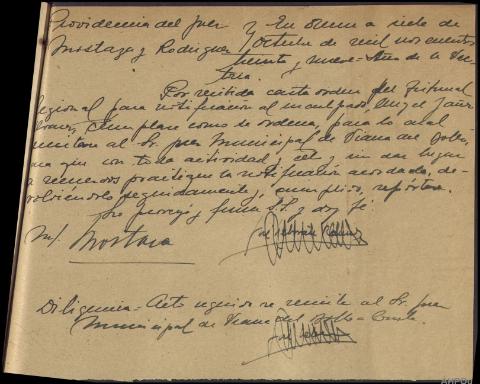 Providencia del Juez } En Orense a siete de
Mostaza y Rodriguez } Octubre de mil novecientos
treinta y nueve - Año de la Vic-
toria.
Por recibida carta orden del Tribunal
Regional para notificación al inculpado Angel
cúmplase como se ordena, para lo cual
remítase al Sr. Juez Municipal de Viana del Bollo,
para que con toda actividad, celo y sin dar lugar
a recuerdos practique la notificación acordada, de-
volviéndolo seguidamente, cumplido, repórtese.
Lo proveyó y firma S.S. y doy fé
M/. Mostaza
Diligencia = Acto seguido se remite al Sr. Juez
Municipal de Viana del Bollo =